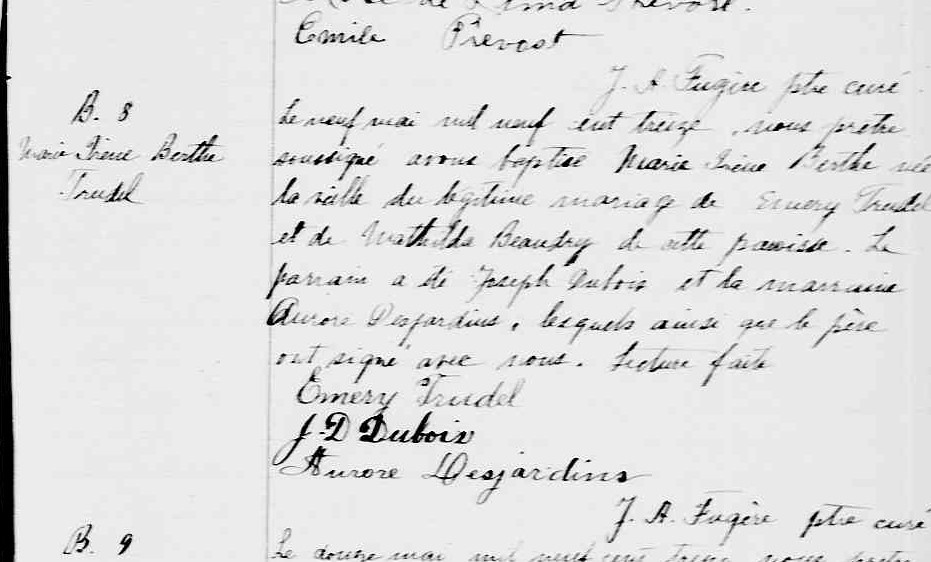 Rose de Lima Prevost.
Emile Prevost
J. A. Fugère ptre curé.
B. 8
Marie Irène Berthe
Trudel
Le neuf mai mil neuf cent treize, nous prêtre
soussigné avons baptisé Marie Irène Berthe née
la veille du légitime mariage de Emery Trudel
et de Mathilda Beaudry de cette paroisse. Le
parrain a été Joseph Dubois et la marraine
Aurore Desjardins, lesquels ainsi que le père
ont signé avec nous. Lecture faite
Emery Trudel
J. D Dubois
Aurore Desjardins
J. A. Fugère ptre curé
B. 9
Le douze mai mil neuf cent treize nous prêtre